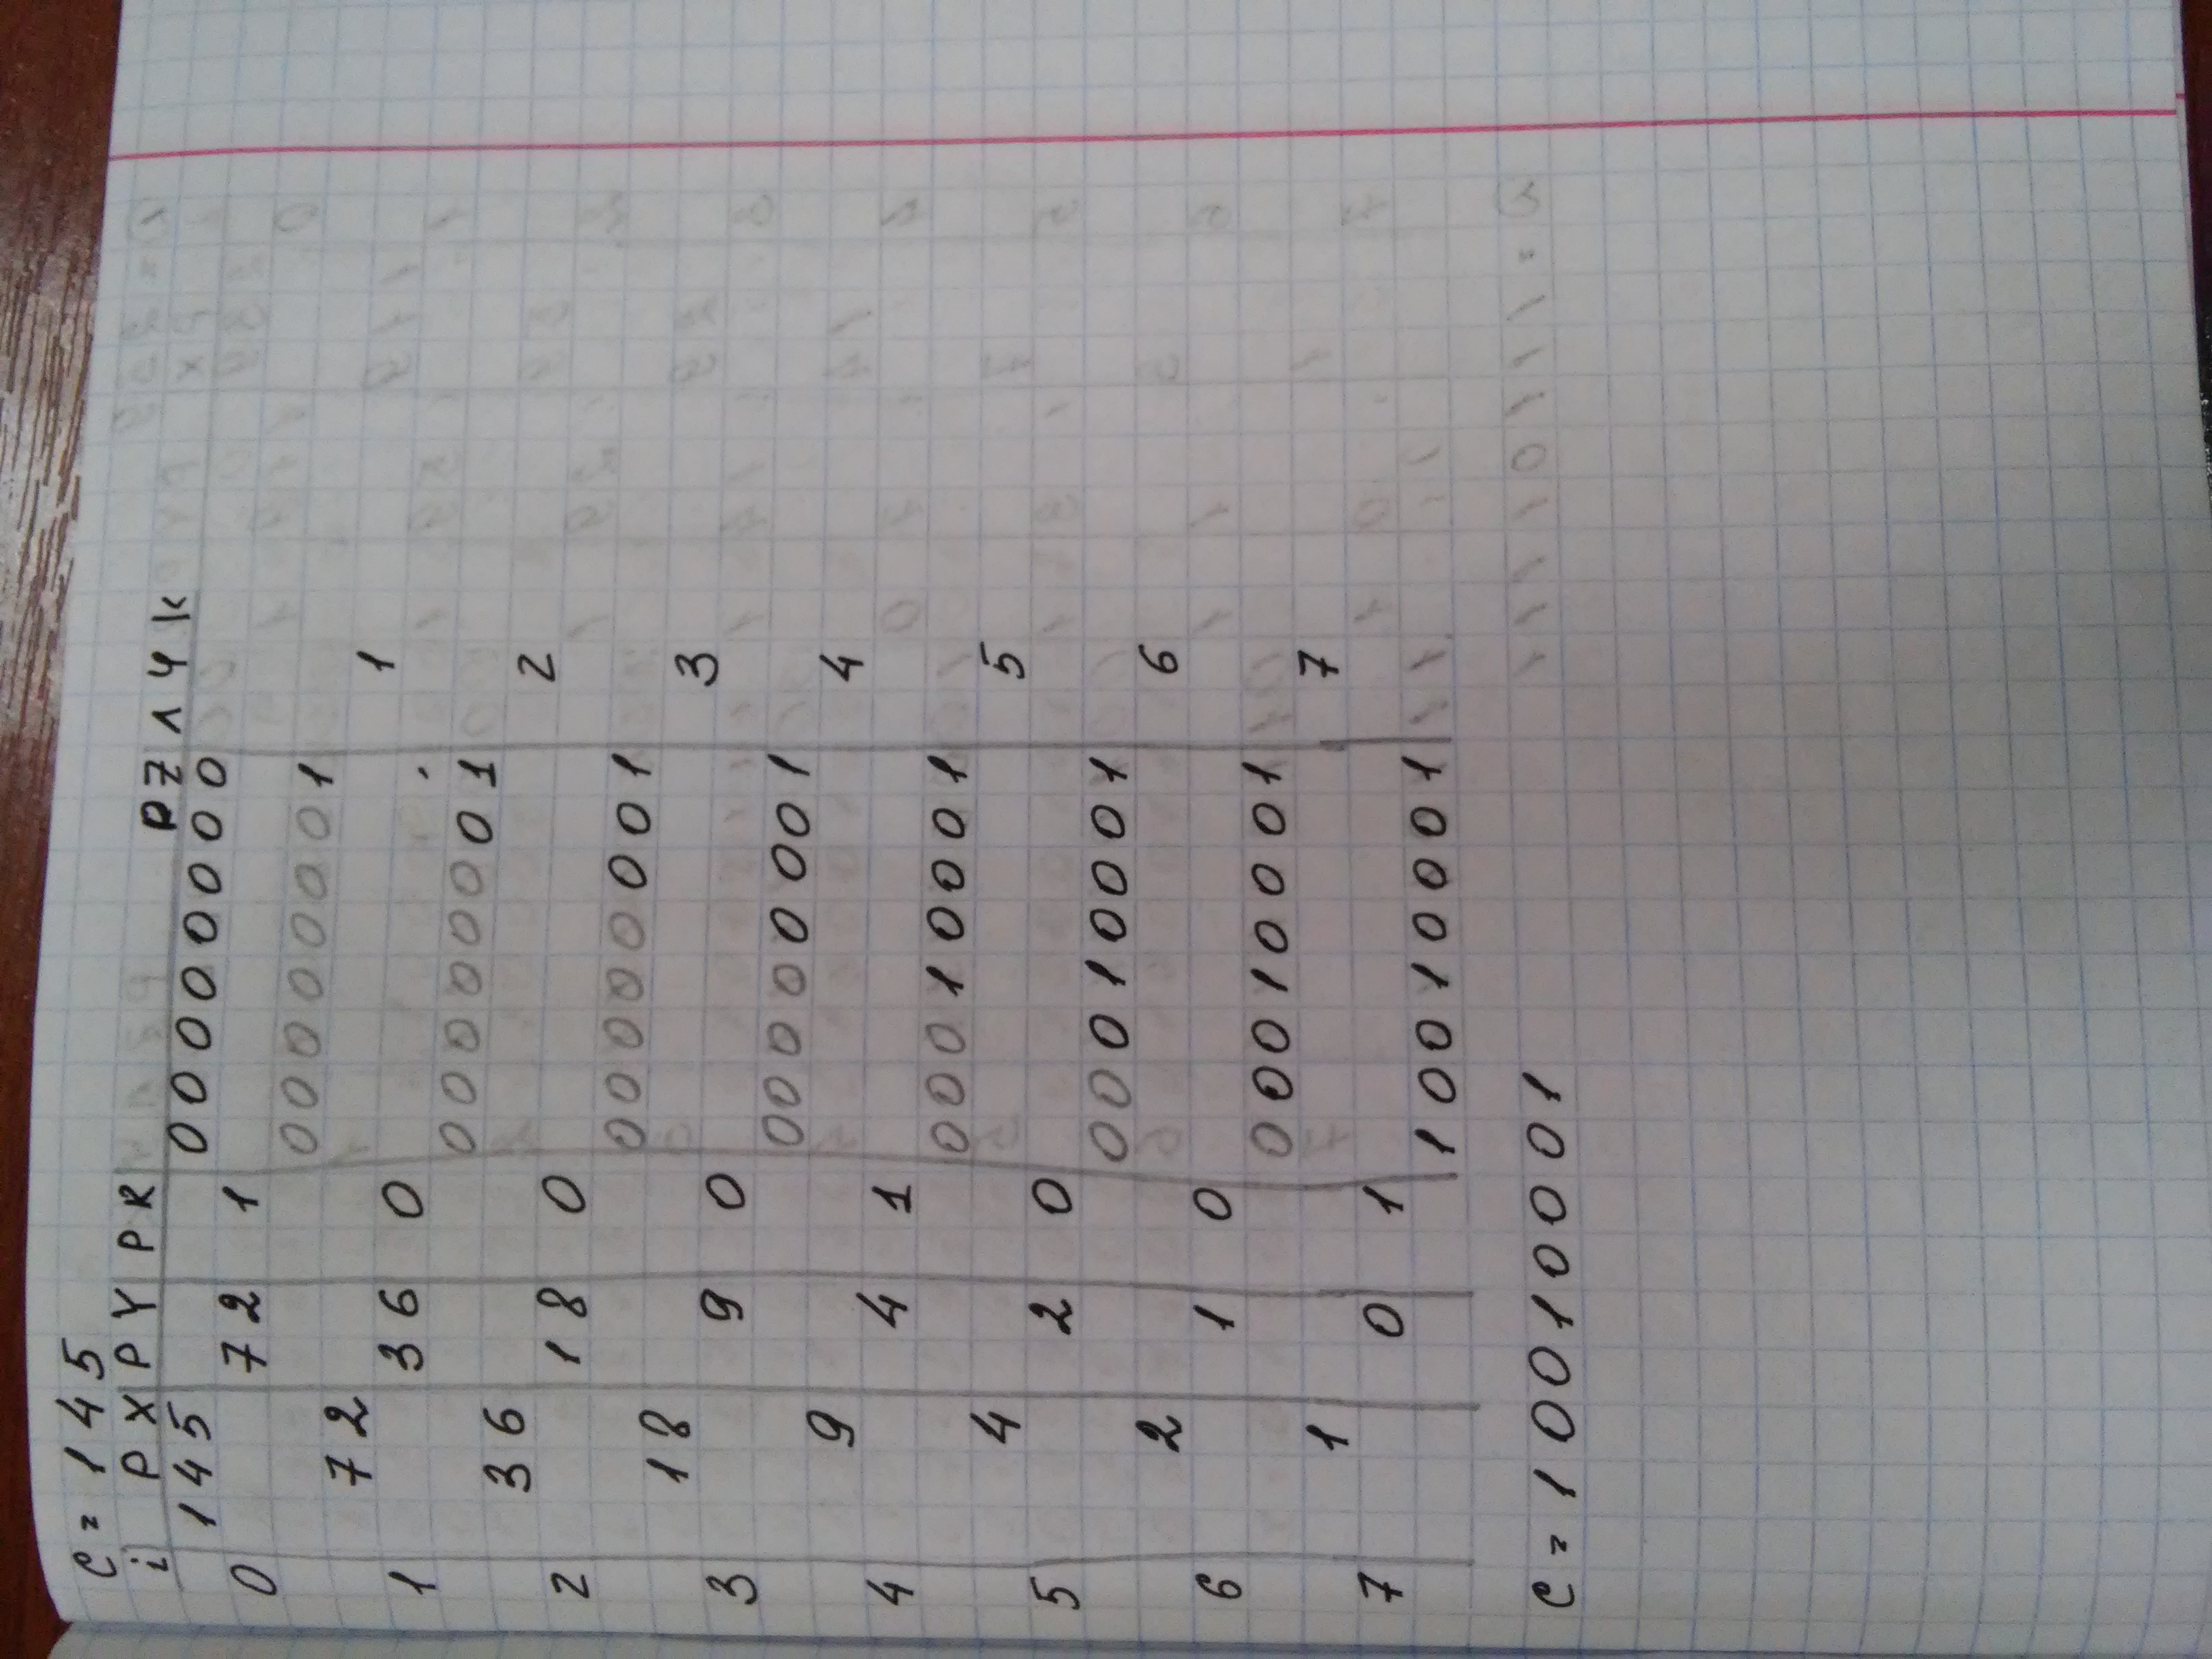 C = 145
i PX PY PR PZ 1 ЧК
145 00000000
0 72 1
00000001
72 1
1 36 0
00000001
36 2
2 18 0
00000001
18 3
3 9 0
00000001
9 4
4 4 1
00010001
4 5
5 2 0
00010001
2 6
6 1 0
00010001
1 7
7 0 1
10010001
C = 10010001